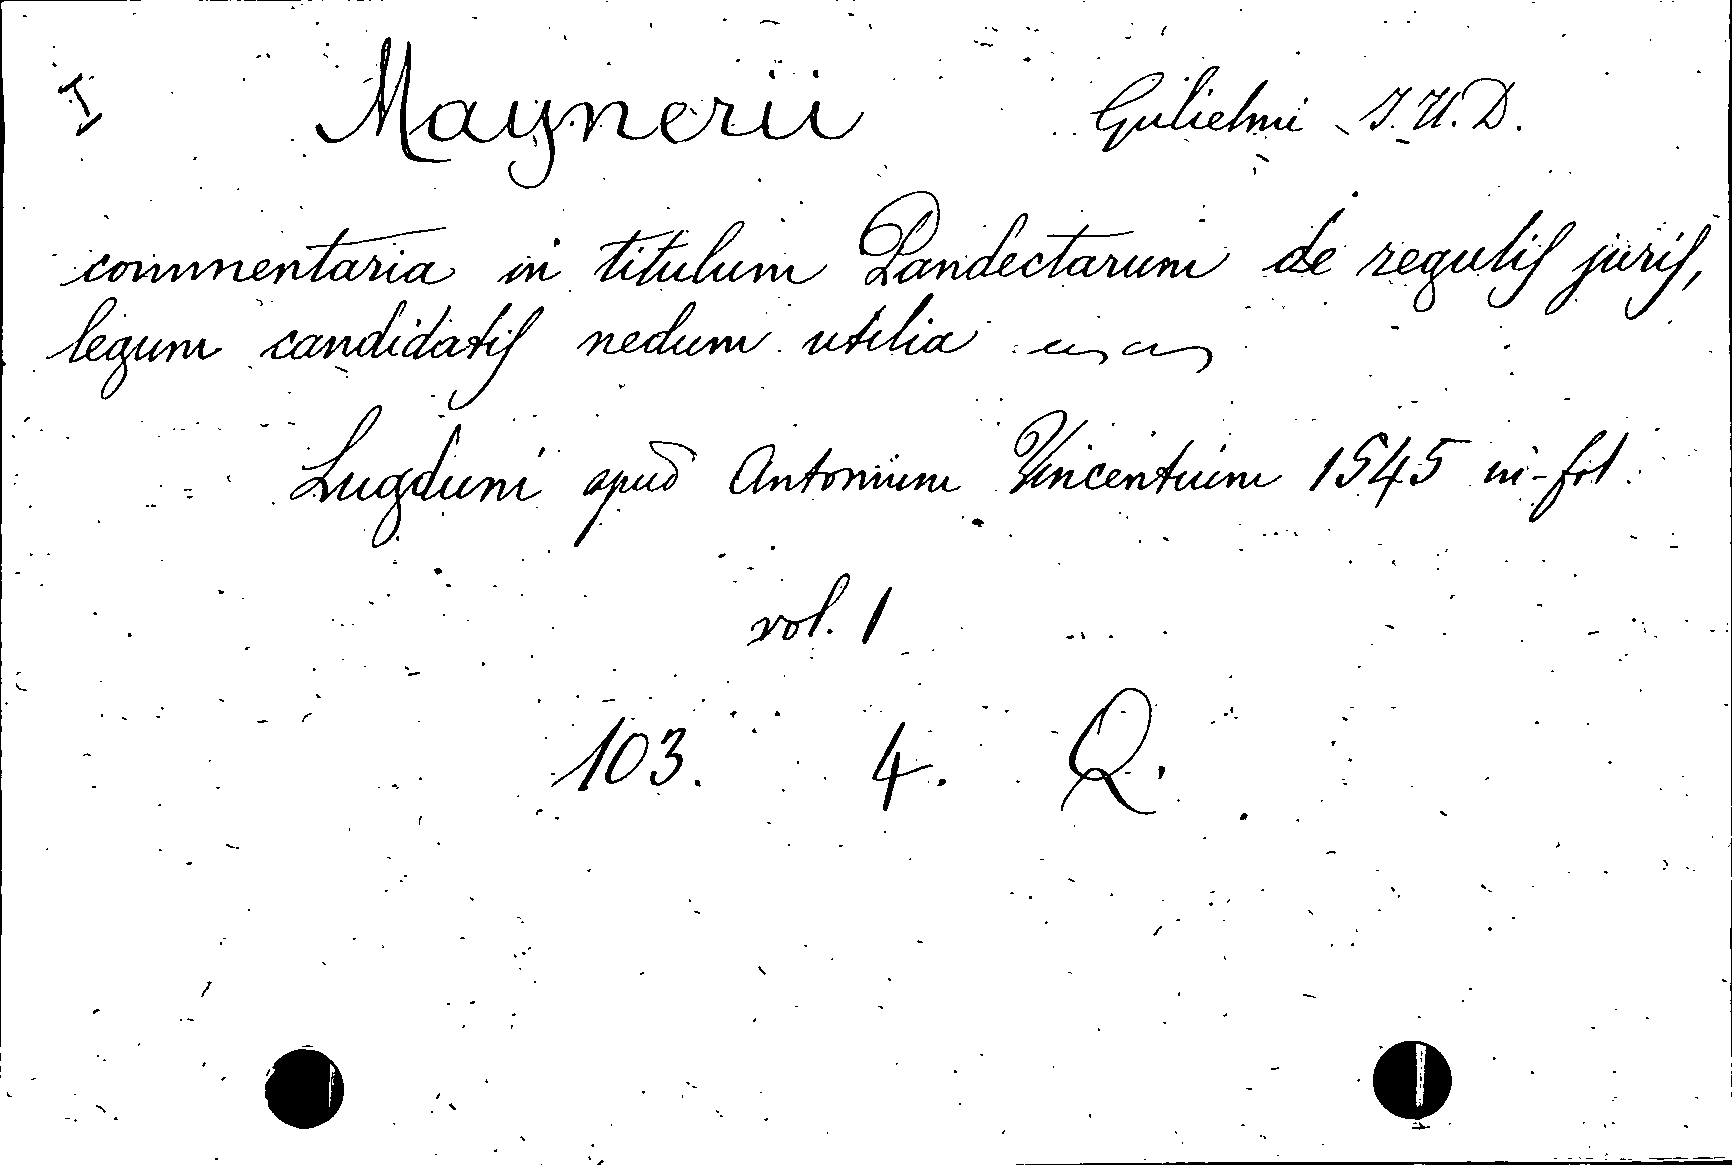 I Maynerii Gulielmi J.U.D.
commentaria in titulum Pandectarum de regulis juris,
legum candidatis nedum utilia
Lugduni apud Antonium Vincentium 1545 in-fol
vol. 1
103. 4. Q.